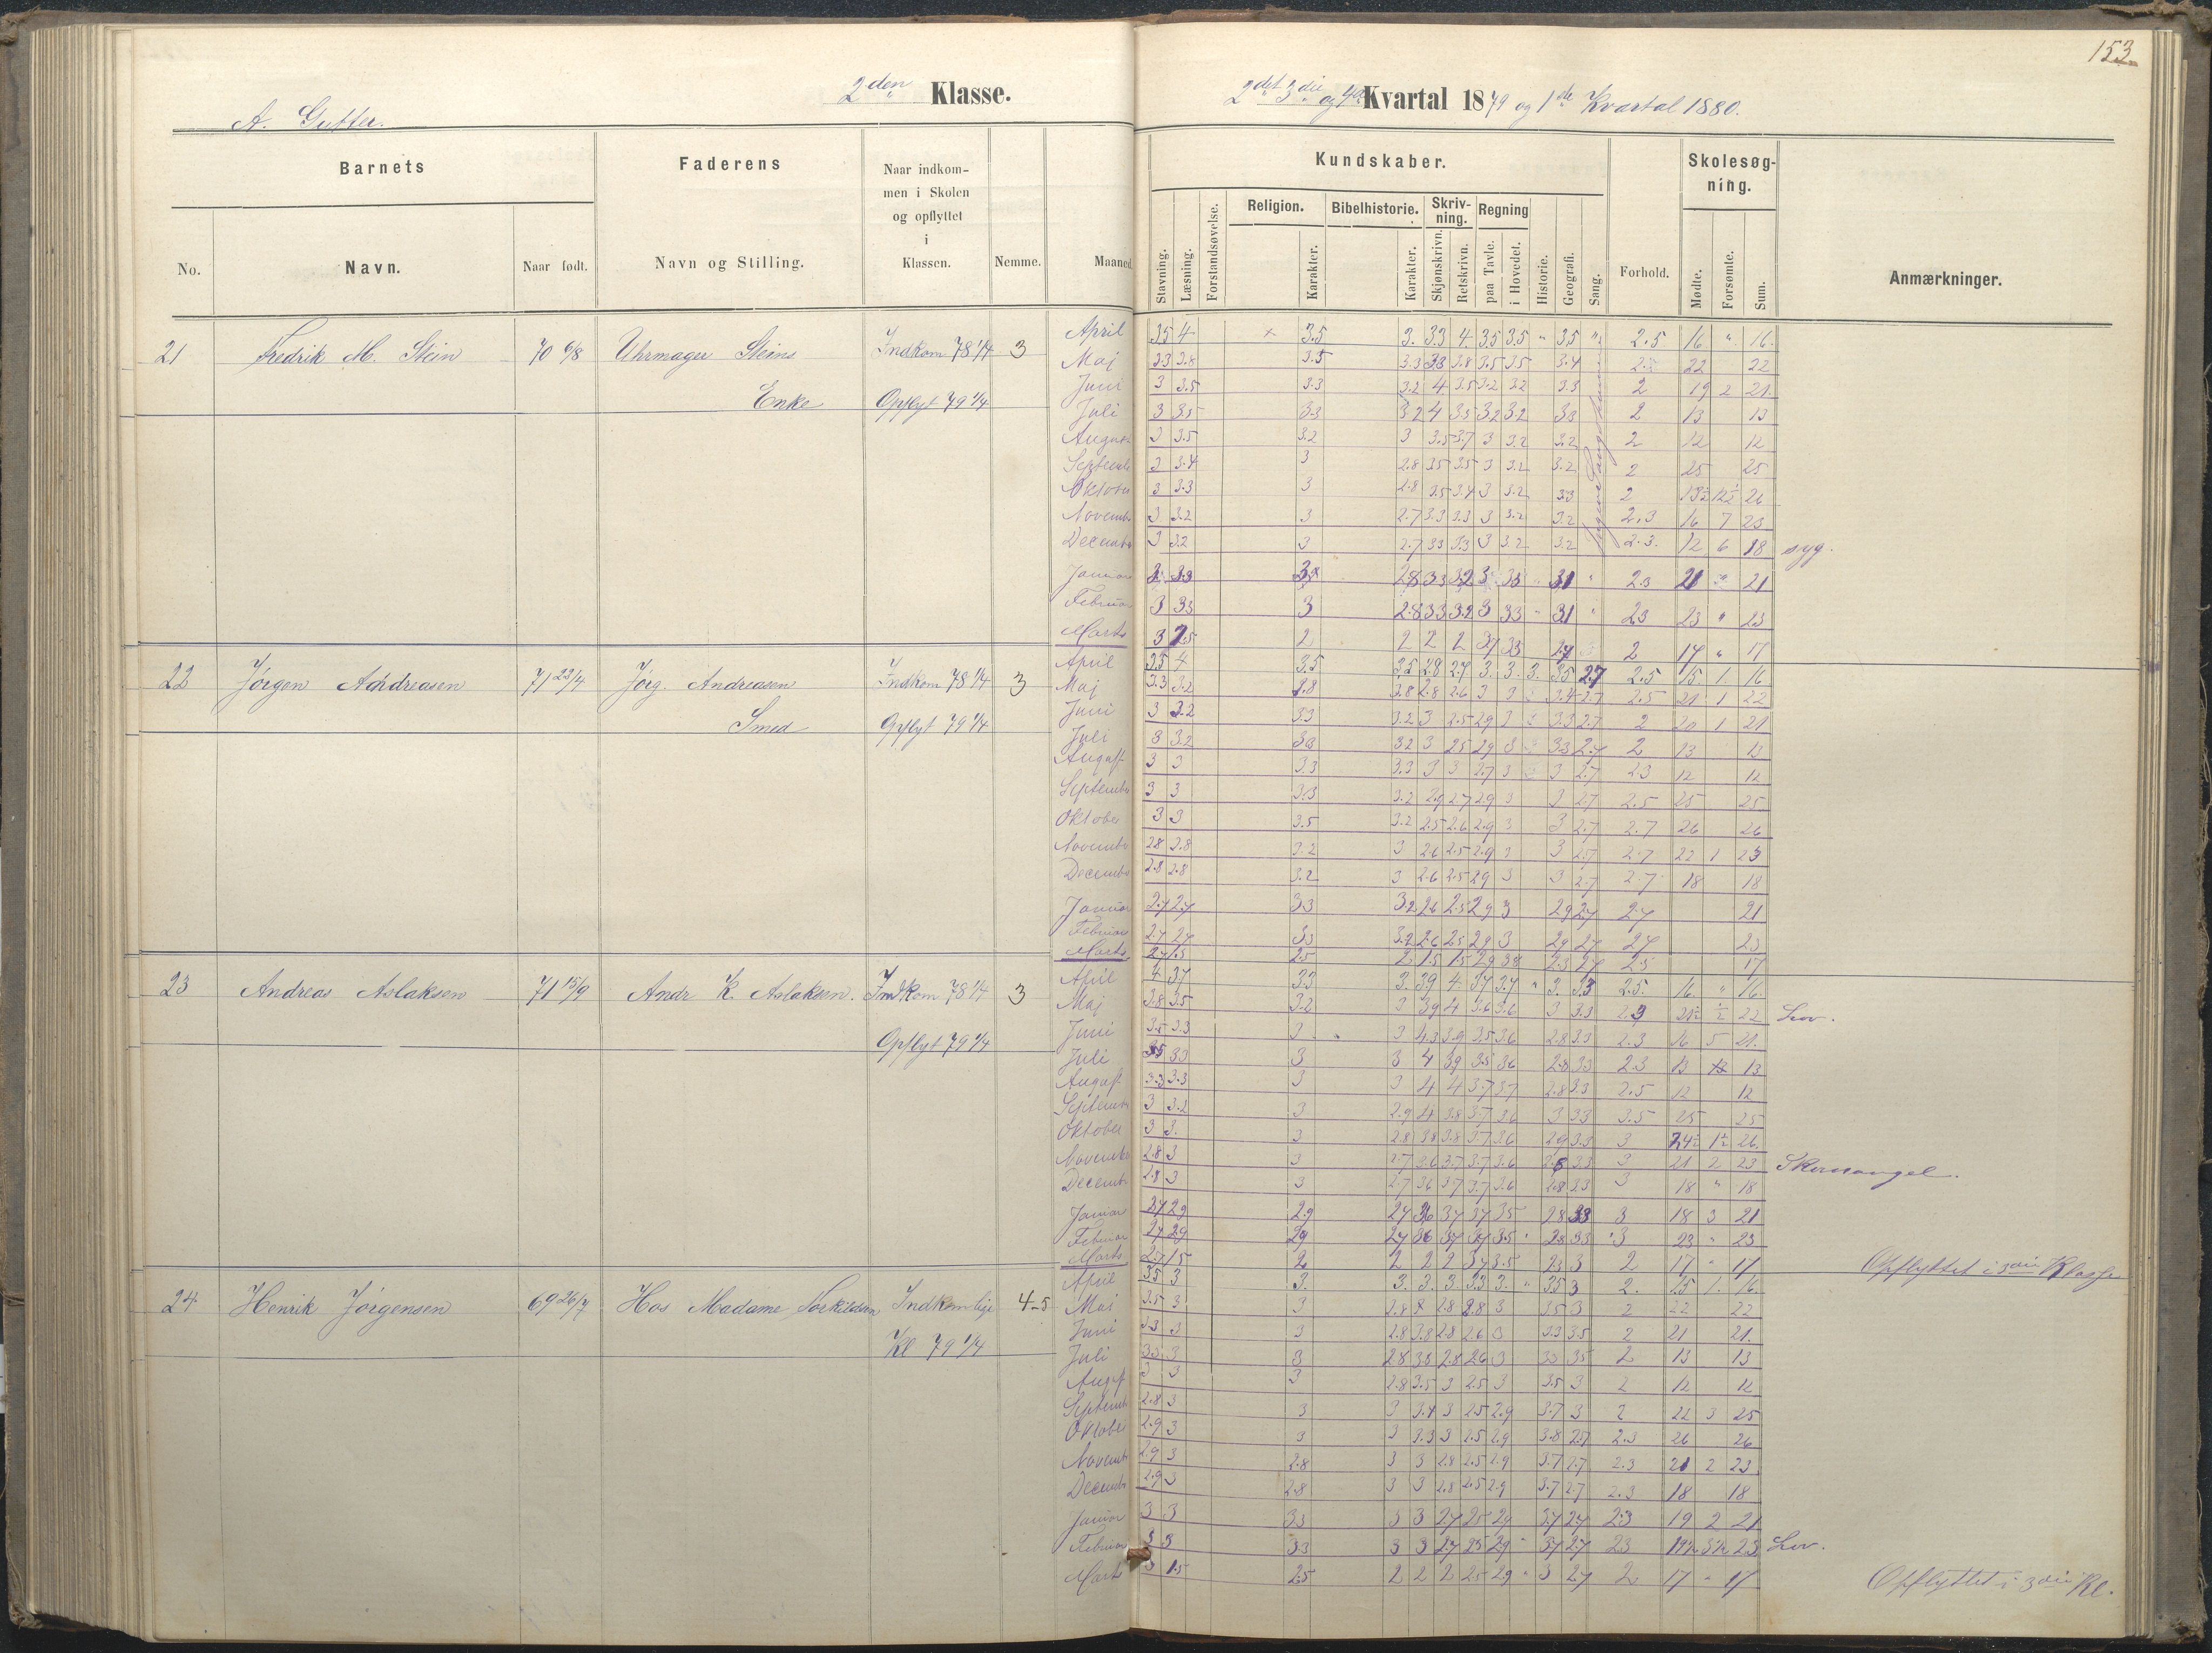 153
2den Klasse.
2det 3die og 4de Kvartal 1879 og 1ste Kvartal 1880.
A. Gutter.
Barnets
Faderens
Naar indkom-
men i Skolen
og opflyttet
i
Klassen.
No.
Navn.
Naar født.
Navn og Stilling.
Nemme.
Maaned
Kundskaber.
Skolesøg-
ning.
Religion.
Bibelhistorie.
Skriv-
ning.
Regning
Stavning.
Læsning.
Forstandsøvelse.
Karakter.
Karakter.
Skjønskrivn.
Retskrivn.
paa Tavle.
i Hovedet.
Historie.
Geografi.
Sang.
Forhold.
Mødte.
Forsømte.
Sum.
Anmærkninger.
21 Fredrik M. Stein 70 6/8 Uhrmager Steins Indkom 78 1/4 3
Enke Opflyt 79 1/4
April 3.5 4 3.5 3. 3.3 4. 3.5 3.5 " 3.5 " 2.5 16 " 16.
Maj 3.3 3.8 3.5 3.3 3.3 3.8 3.5 3.5 3.4 22 22
Juni 3 3.5 3.3 3.2 4 3.5 3.2 3.2 3.3 2 19 2 21.
Juli 3 3.5 3.3 3.2 4 3.5 3.2 3.2 3.3 2 13 13
August 3 3.5 3.2 3 3.5 3.7 3 3.2 3.2 2 12 12
Septemb 3 3.4 3 2.8 3.5 3.5 3 3.2 3.2 2 25 25
Oktober 3 3.3 3 2.8 3.5 3.4 3 3.2 3.3 2 13½ 12½ 26
Novemb 3 3.2 3 2.7 3.3 3.3 3 3.2 3.2 2.3 16 7 23
Decemb 3 3.2 3 2.7 3.3 3.3 3 3.2 3.2 2.3. 12 6 18 syg.
Januar 3 3.3 2.8 3.3 3.2 3 3.3 31 " 2.3 21 21
Februar 3 33 3 2.8 33 3.2 3 33 " 31 " 23 23 " 23
Marts 3 2 2 2 2 33 27 2 17 " 17
22 Jørgen Andreasen 71 23/4 Jørg. Andreasen Indkom 78 1/4 3
Smed Opflyt 79 1/4
April 3.5 4 3.5 3.5 2.8 2.7 3. 3. 3. 3.5 2.7 2.5 15. 1. 16
Maj 3.3 3.2 3.8 2.8 2.6 3 3 3.4 2.7 2.5 21 1 22
Juni 3 3.2 3.3 3.2 3 2.5 2.9 3 3.3 2.7 2 20 1 21
Juli 3 3.2 3.3 3.2 3 2.5 2.9 3 3.3 2.7 2 13 13
August 3 3 3.3 3.3 3 3 2.7 3 3 2.7 2.3 12 12
Septemb 3 3 3.3 3.2 2.9 2.7 2.9 3 3 2.7 2.5 25 25
Oktober 3 3 3.5 3.2 2.5 2.6 2.9 3 3 2.7 2.7 26 26
Novemb 2.8 2.8 3.2 3 2.6 2.5 2.9 3 3 2.7 2.7 22 1 23
Decemb 2.8 2.8 3.2 3 2.6 2.5 2.9 3 3 2.7 2.7 18 18
Januar 2.7 2.7 33 3.2 2.6 2.5 2.9 3 29 27 27 21
Februar 2.7 27 33 3.2 2.6 25 29 3 29 27 27 23
Marts 27 1.5 25 2 1.5 1.5 29 38 2.3 27 2.5 17
23 Andreas Aslaksen 71 15/9 Andr K. Aslaksen. Indkom 78 1/4 3
Opflyt 79 1/4
April 4 3.7 3.3 3. 3.9 4. 3.7 3.7 " 3. 3.3 2.5. 16. " 16.
Maj 3.8 3.5 3.2 3 3.9 4 3.6 3.6 3 3.3 2.9 21½ ½ 22 Lov.
Juni 3.5 3.3 3 3 4.3 3.9 3.5 3.6 2.8 3.3 2.3 16 5 21.
Juli 3.5 3.3 3 3 4 3.9 3.5 3.6 2.8 3.3 2.3 13 13
August 3.3 3.3 3 3 4 4 3.7 3.7 2.8 3.3 2.5 12 12
Septemb 3 3.2 3 2.9 4 3.8 3.7 3.6 3 3.3 3.5 25 25
Oktober 3 3. 3 2.8 3.8 3.8 3.7 3.6 2.9 3.3 3 24½ 1½ 26
Novemb 2.8 3 3 2.7 3.6 3.7 3.7 3.6 2.8 3.3 3 21 2 23 Skomangel.
Decemb 2.8 3 3 2.7 3.6 3.7 3.7 3.6 2.8 3.3 3 18 " 18
Januar 27 29 29 27 36 37 37 35 28 33 3 18 3 21
Februar 27 29 29 27 36 37 37 3.5 " 28 33 3 23 " 23
Marts 2.7 1.5 2 2 2 2 37 3.5 23 3 2 17 " 17 Opflyttet i 3die Klasse
24 Henrik Jørgensen 69 26/7 Hos Madame Torkildsen Indkom lige 4-5
Kl 79 1/4
April 3.5 3 3. 3. 3. 3 3.3 3. " 3.5 3 2. 15 1. 16.
Maj 3.5 3 3 2.8 2.8 2.8 3 3.5 3 2 22 22
Juni 3.3 3 3 2.8 3.8 2.8 2.6 3 3.3 3.5 2 21 21.
Juli 3.3 3 3 2.8 3.8 2.8 2.6 3 3.5 2 13 13
August 3 3 3 2.8 3.5 3 2.5 3 3.5 3 2 12 12
Septemb 2.8 3 3 3 3.4 3 2.5 2.9 3.7 3 2 22 3 25
Oktober 2.9 3 3 3 3.3 3 2.5 2.9 3.8 2.7 2.3 26 26
Novemb 2.9 3 2.8 3 3 2.8 2.5 2.9 3.7 2.7 2.3 21 2 23
Decemb 2.9 3 2.8 3 3 2.8 2.5 2.9 3.7 2.7 2.3 18 18
Januar 3 3 33 3 3 27 25 29 37 27 23 19 2 21
Februar 3 3 33 3 3 27 25 29 " 37 27 23 19½ 3½ 23 Lov.
Marts 3 1.5 25 2 2 2 25 29 " 3 27 2 17 " 17 Opflyttet i 3die Kl.